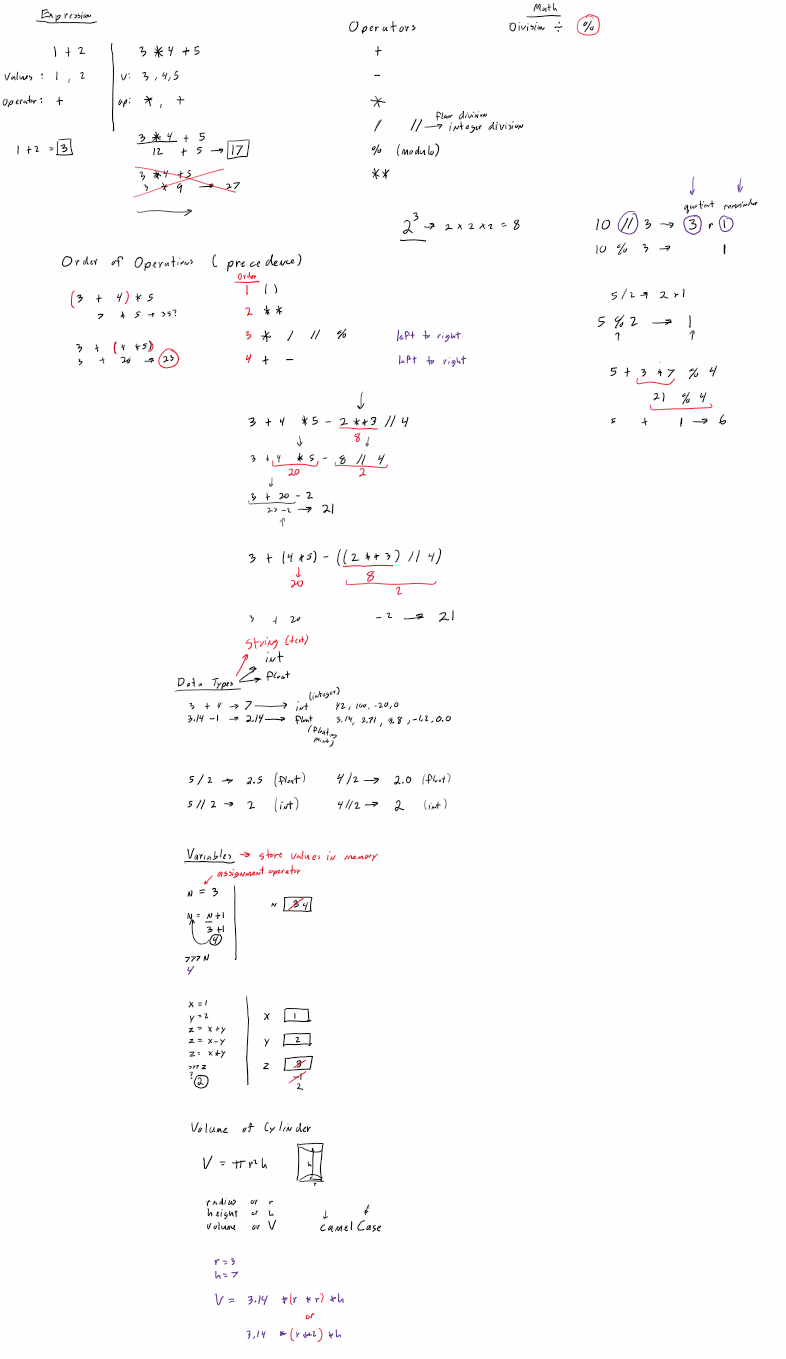 Expression
1 + 2
Values : 1 , 2
Operator : +
1 + 2 = 3
3 * 4 + 5
V: 3, 4, 5
op: *, +
3 * 4 + 5
12 + 5 → 17
3 * 4 + 5
3 * 9 → 27
Operators
+
-
*
/ // → integer division
floor division
% (modulo)
**
2³ → 2 x 2 x 2 = 8
Math
Division ÷ %
quotient remainder
10 // 3 → 3 r 1
10 % 3 → 1
5 / 2 → 2 r 1
5 % 2 → 1
5 + 3 * 7 % 4
21 % 4
5 + 1 → 6
Order of Operations ( precedence)
(3 + 4) * 5
7 * 5 → 35?
3 + (4 * 5)
3 + 20 → 23
Order
1 ()
2 **
3 * / // % left to right
4 + - left to right
3 + 4 * 5 - 2 ** 3 // 4
8
3 + 4 * 5 - 8 // 4
20 2
3 + 20 - 2
23 - 2 → 21
3 + (4 * 5) - ((2 ** 3) // 4)
20 8
2
3 + 20 - 2 → 21
String (text)
int
float
Data Types
3 + 4 → 7 → int (integer) 42, 100, -20, 0
3.14 - 1 → 2.14 → float 3.14, 2.71, 9.8, -1.2, 0.0
(floating point)
5 / 2 → 2.5 (float) 4 / 2 → 2.0 (float)
5 // 2 → 2 (int) 4 // 2 → 2 (int)
Variables → store values in memory
assignment operator
N = 3
N = N + 1
3 + 1
4
>>> N
4
N 3 4
x = 1
y = 2
z = x + y
z = x - y
z = x * y
>>> z
? 2
X 1
Y 2
Z 3
-1
2
Volume of Cylinder
V = π r² h
h
r
radius or r
height or h
volume or V
camel Case
r = 3
h = 7
V = 3.14 * (r * r) * h
or
3.14 * (r ** 2) * h